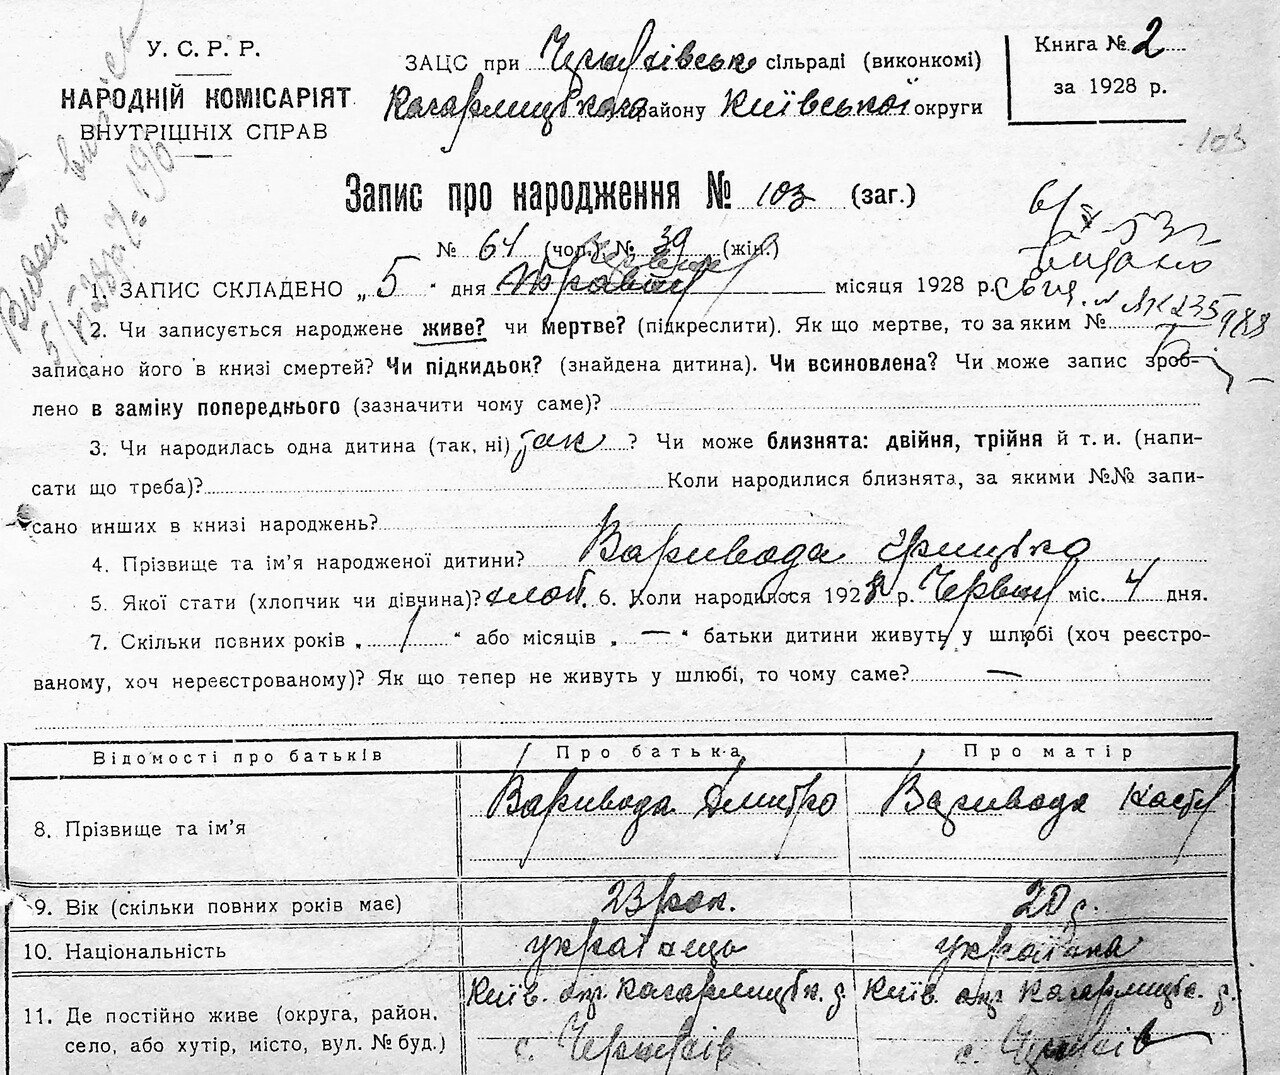 У. С. Р. Р.
НАРОДНІЙ КОМІСАРІЯТ
ВНУТРІШНІХ СПРАВ
ЗАЦС при сільраді (виконкомі)
Кагарлицького району Київської округи
Книга № 2
за 1928 р.
103
Запис про народження № 103 (заг.)
№ 64 (чол.) № 39 (жін.)
1. ЗАПИС СКЛАДЕНО „5“ дня місяця 1928 р.
2. Чи записується народжене живе? чи мертве? (підкреслити). Як що мертве, то за яким №
записано його в книзі смертей? Чи підкидьок? (знайдена дитина). Чи всиновлена? Чи може запис зроб-
лено в заміку попереднього (зазначити чому саме)?
3. Чи народилась одна дитина (так, ні) так ? Чи може близнята: двійня, трійня й т. и. (напи-
сати що треба)? Коли народилися близнята, за якими №№ запи-
сано инших в книзі народжень?
4. Прізвище та ім'я народженої дитини? Варивода Грицько
5. Якої стати (хлопчик чи дівчина)? хлоп. 6. Коли народилося 1928 р. Червня міс. 4 дня.
7. Скільки повних років „ 1 “ або місяців „ — “ батьки дитини живуть у шлюбі (хоч реєстро-
ваному, хоч нереєстрованому)? Як що тепер не живуть у шлюбі, то чому саме? —
Відомості про батьків Про батька Про матір
8. Прізвище та ім'я Варивода Дмитро Варивода
9. Вік (скільки повних років має) 23 рок. 20 р.
10. Національність українець українка
11. Де постійно живе (округа, район, Київ. окр. Кагарлицьк. р. Київ. окр. Кагарлицьк. р.
село, або хутір, місто, вул. № буд.) с. с.